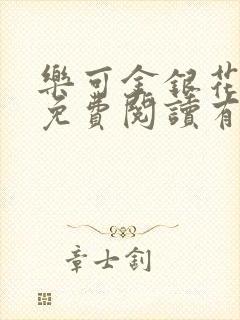 樂可金銀花
免費閱讀有
章士釗